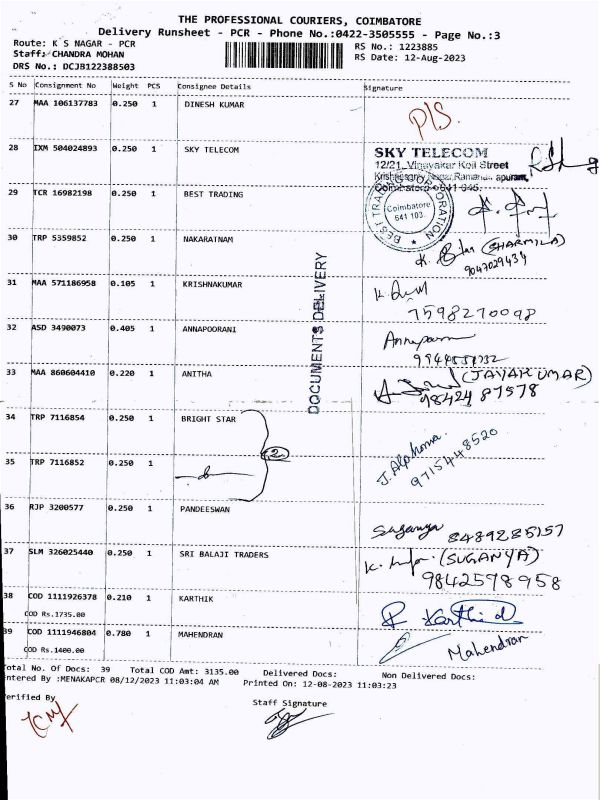 THE PROFESSIONAL COURIERS, COIMBATORE
Delivery Runsheet - PCR - Phone No.:0422-3505555 - Page No.:3
Route: K S NAGAR - PCR
RS No.: 1223885
Staff: CHANDRA MOHAN
RS Date: 12-Aug-2023
DRS No.: DCJB122388503
S No Consignment No Weight PCS Consignee Details Signature
27 MAA 106137783 0.250 1 DINESH KUMAR
P/S.
28 IXM 504024893 0.250 1 SKY TELECOM
SKY TELECOM
12/21, Vinayakar Koil Street
Krishnasamy Nagar, Ramanathapuram,
Coimbatore - 641 045.
29 TCR 16982198 0.250 1 BEST TRADING
BEST TRADING CORPORATION
Coimbatore
641 103.
30 TRP 5359852 0.250 1 NAKARATNAM
(SHARMILA)
9047029434
DOCUMENTS DELIVERY
31 MAA 571186958 0.105 1 KRISHNAKUMAR
7598270098
32 ASD 3490073 0.405 1 ANNAPOORANI
33 MAA 860604410 0.220 1 ANITHA
(JAYAKUMAR)
98424 87578
34 TRP 7116854 0.250 1 BRIGHT STAR
2
J. Alphonsa.
9715448520
35 TRP 7116852 0.250 1
36 RJP 3200577 0.250 1 PANDEESWAN
Suganya 8489285157
37 SLM 326025440 0.250 1 SRI BALAJI TRADERS
(SUGANYA)
9842598958
38 COD 1111926378 0.210 1 KARTHIK
COD Rs.1735.00
39 COD 1111946804 0.780 1 MAHENDRAN
COD Rs.1400.00
Mahendran
Total No. Of Docs: 39 Total COD Amt: 3135.00 Delivered Docs: Non Delivered Docs:
Entered By :MENAKAPCR 08/12/2023 11:03:04 AM Printed On: 12-08-2023 11:03:23
Verified By
Staff Signature